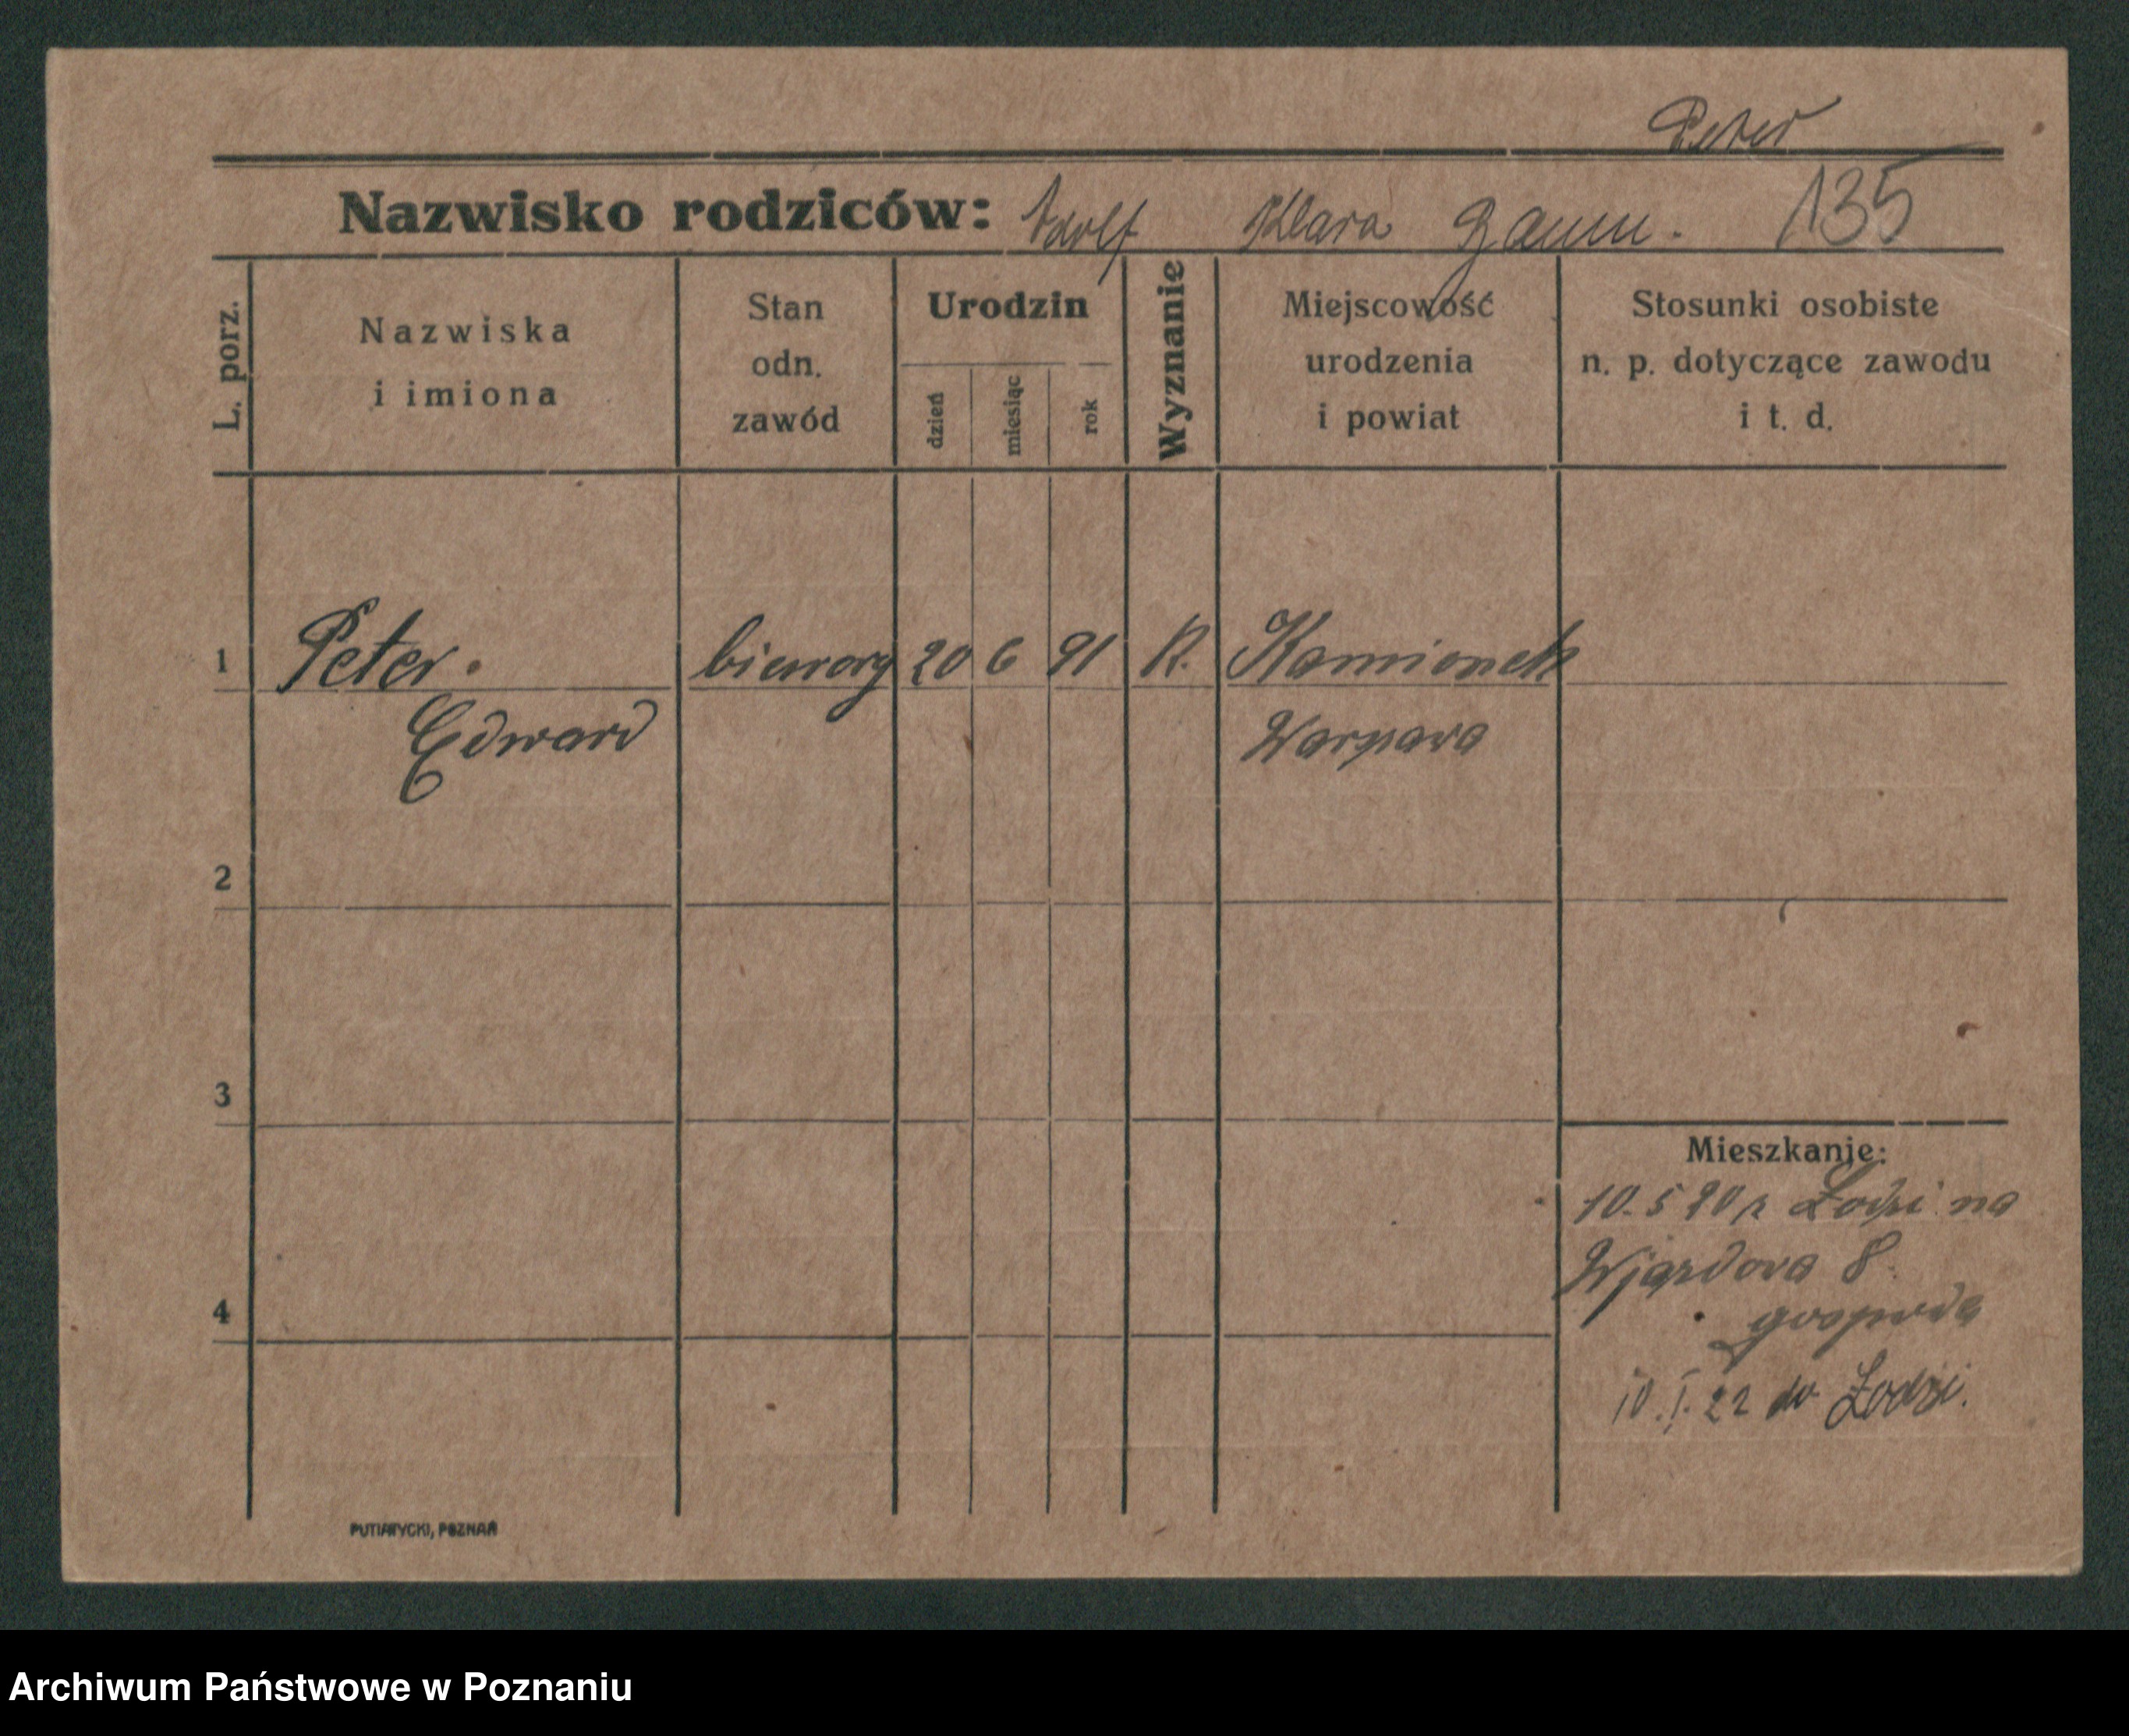 Peter
Nazwisko rodziców: Adolf Klara 135
L. porz.
Nazwiska
i imiona
Stan
odn.
zawód
Urodzin
dzień
miesiąc
rok
Wyznanie
Miejscowość
urodzenia
i powiat
Stosunki osobiste
n. p. dotyczące zawodu
i t. d.
1 Peter. 20 6 91 K. Kamionek
Edward Warszawa
2
3
4
Mieszkanie:
10.5 20 z Łodzi na
Wjazdowa 8
gospoda
10.I.22 do Łodzi.
PUTIATYCKI, POZNAŃ
Archiwum Państwowe w Poznaniu